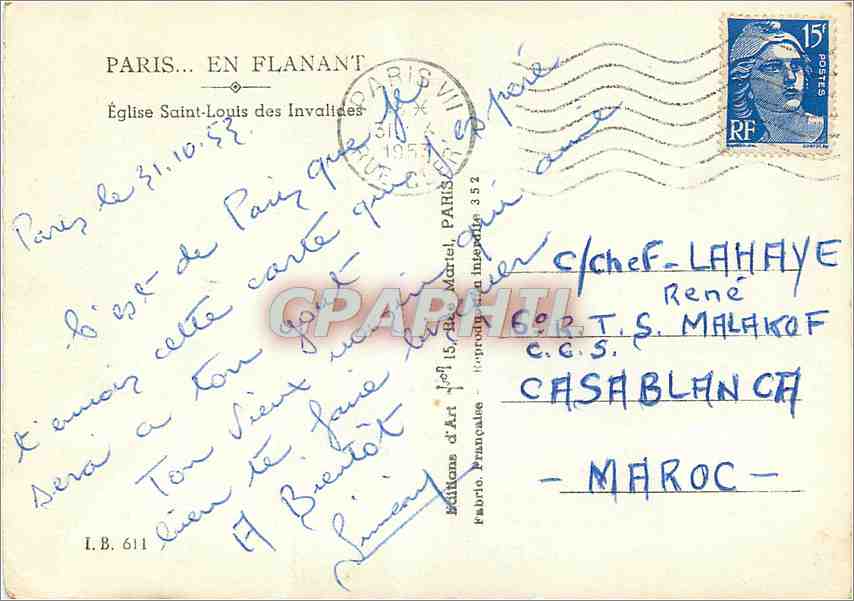 PARIS... EN FLANANT
Église Saint-Louis des Invalides
Paris le 31.10.53
C'est de Paris que je
t'envois cette carte qui j'espère
sera a ton gout
Ton vieux voisin qui aime
bien te faire
A Bientôt
I. B. 611
Editions d'Art Yvon, 15, Rue Martel, PARIS
Fabric. Française - Reproduction Interdite 352
PARIS VII
31
1953
RUE CLER
15F
POSTES
RF
C/Chef-LAHAYE
René
6e R. T. S. MALAKOF
C.C.S.
CASABLANCA
- MAROC -
CPAPHIL